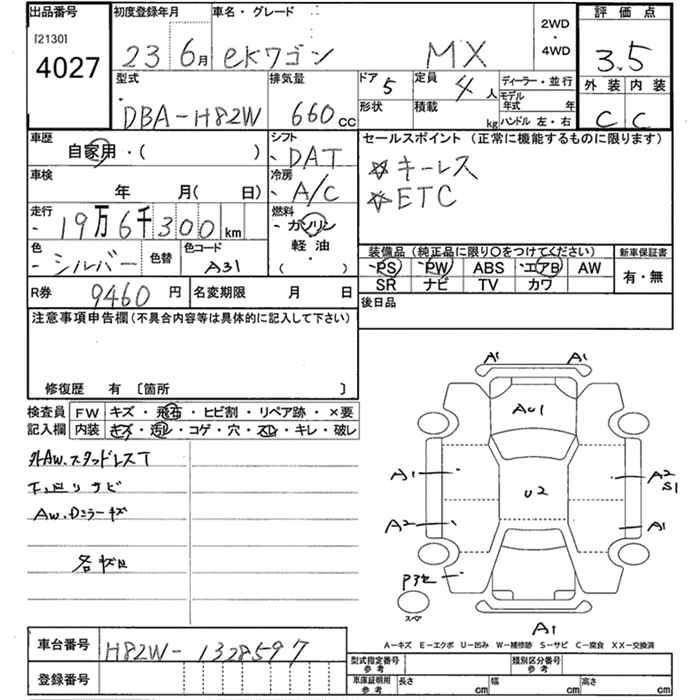 出品番号 初度登録年月 車名・グレード 2WD・4WD 評価点
[2130]
4027 23 6月 eKワゴン MX 3.5
型式 排気量 ドア 5 定員 4人 ディーラー・並行 外装 内装
DBA-H82W 660cc 形状 積載 kg モデル年式 年 ハンドル 左・右 C C
車歴 シフト セールスポイント (正常に機能するものに限ります)
自家用・( ) DAT ☆キーレス
車検 冷房 ☆ETC
年 月( 日) A/C
走行 燃料
19万6千300km ガソリン
色 色替 色コード 軽油 装備品 (純正品に限り○をつけてください) 新車保証書
シルバー A31 ・( ) PS PW ABS エアB AW 有・無
R券 9460円 名変期限 月 日 SR ナビ TV カワ
注意事項申告欄(不具合内容等は具体的に記入して下さい) 後日品
修復歴 有 〔箇所 〕
検査員 FW キズ・飛石・ヒビ割・リペア跡・×要
記入欄 内装 キズ・汚レ・コゲ・穴・スレ・キレ・破レ
外AW.スタッドレスT
下廻りサビ
AW.Dミラーキズ
A1 A1
AU1
A1 A2
S1
U2
A2 A1
スペア
A1
A-キズ E-エクボ U-凹み W-補修跡 S-サビ C-腐食 XX-交換済
車台番号 H82W-1328597 型式指定番号 参考 類別区分番号 参考
登録番号 車庫証明用 参考 長さ cm 幅 cm 高さ cm